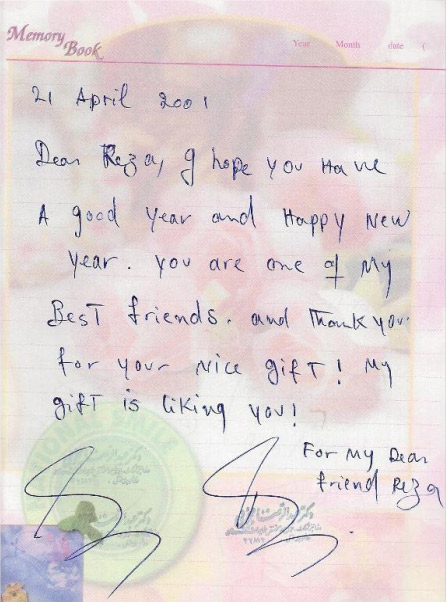 Memory
Book
Year Month date (
21 April 2001
Dear Reza, I hope you Have
A good year and Happy New
year. you are one of My
BesT friends. and Thank you
for your Nice gifT! My
gifT is liking you!
For My Dear
friend Reza